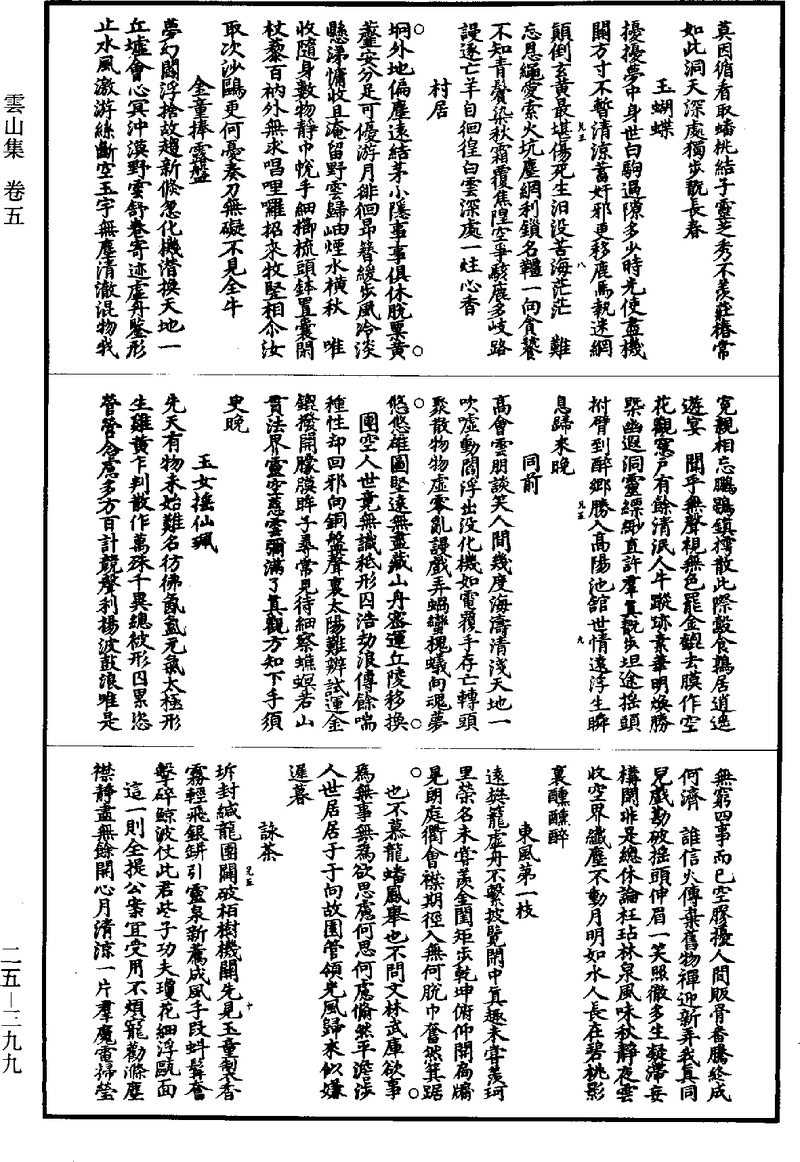 雲山集　卷五
二五—二九九
莫因循看取蟠桃結子靈芝秀不羨莊椿常
如此洞天深處獨步翫長春
玉蝴蝶
擾擾夢中身世白駒過隙多少時光使盡機
關方寸不暫清涼蓄奸邪更移鹿馬執迷網
顛倒玄黃最堪傷死生汩没苦海茫茫　難
忘恩繩愛索火坑塵網利鎖名韁一向貪饕
不知青鬢染秋霜覆焦隍空爭駭鹿多岐路
謾逐亡羊自徊徨白雲深處一炷心香
村居
坰外地偏塵遠結茅小隱事事俱休脫粟黃
虀安分足可優游月徘徊昂簪緩步風冷淡
懸涕慵收且淹留野雲歸岫煙水橫秋　唯
收隨身數物靜巾帨手細櫛梳頭鉢置囊閑
杖藜百衲外無求唱哩囉招來牧竪相尒汝
取次沙鷗更何憂奏刀無礙不見全牛
金童捧露盤
夢幻閻浮捨故趨新倏忽化機潛換天地一
丘墟會心冥沖漠野雲舒卷寄迹虛舟鑒形
止水風激游絲斷空玉宇無塵清澈混物我
寃親相忘鵬鷃鎮樗散此際鷇食鶉居逍遙
遊宴　聞乎無聲視無色罷金觀去膜作空
花觀窻戶有餘清泯人牛蹤跡素壽明煥勝
槩幽遐洞靈縹緲直許羣真翫步坦途摇頭
拊臂到醉鄉勝入高陽池舘世情遠浮生瞬
息歸來晚
同前
高會雲朋談笑人間幾度海濤清淺天地一
吹噓動閻浮出没化機如電覆手存亡轉頭
聚散物物虛零亂謾戲弄蝸蠻槐蟻向魂夢
悠悠雄圖堅遠無盡藏山丹壑運丘陵移換
團空人世竟無識祗形囚浩劫浪傳餘喘
種性却回邪向銅盤聲裏太陽難辨試運金
鎞撥開朦膜眸子尋常見待細察蟭螟若山
貫法界靈空慈雲彌滿了真觀方知下手須
史晚
玉女摇仙珮
先天有物未始難名彷彿氤氳元氣太極形
生雞黃乍判散作萬殊千異總被形囚累恣
營營念慮多方百計競聲利揚波鼓浪唯是
無窮四事而已空膠擾人間販骨番騰終成
何濟　誰信火傳棄舊物禪迎新弄我真同
兒戲勘破摇頭伸眉一笑照徹多生凝滯妄
構閑非是總休論枉玷林泉風味秋靜夜雲
收空界纖塵不動月明如水人長在碧桃影
裏醺醺醉
東風第一枝
遠撫籠虛舟不繫披覽閑中真趣未嘗羨珂
里榮名未嘗羨金閨矩步乾坤俯仰閑扃牖
晃朗庭衢會襟期徑入無何脫巾奮然箕踞
也不慕龍蟠鳳舉也不問文林武庫欲事
爲無事無爲欲思慮何思何慮翛然平澹涉
人世居居于于向故園管領光風歸來似嫌
遲暮
詠茶
坼封緘龍團闢破栢樹機關先見玉童製香
霧輕飛銀缾引靈泉新薦成風手段蚪髯奮
擊碎鯨波仗此君些子功夫瓊花細浮甌面
這一則全提公案宜受用不煩寵勸滌塵
襟靜盡無餘開心月清涼一片羣魔電掃瑩